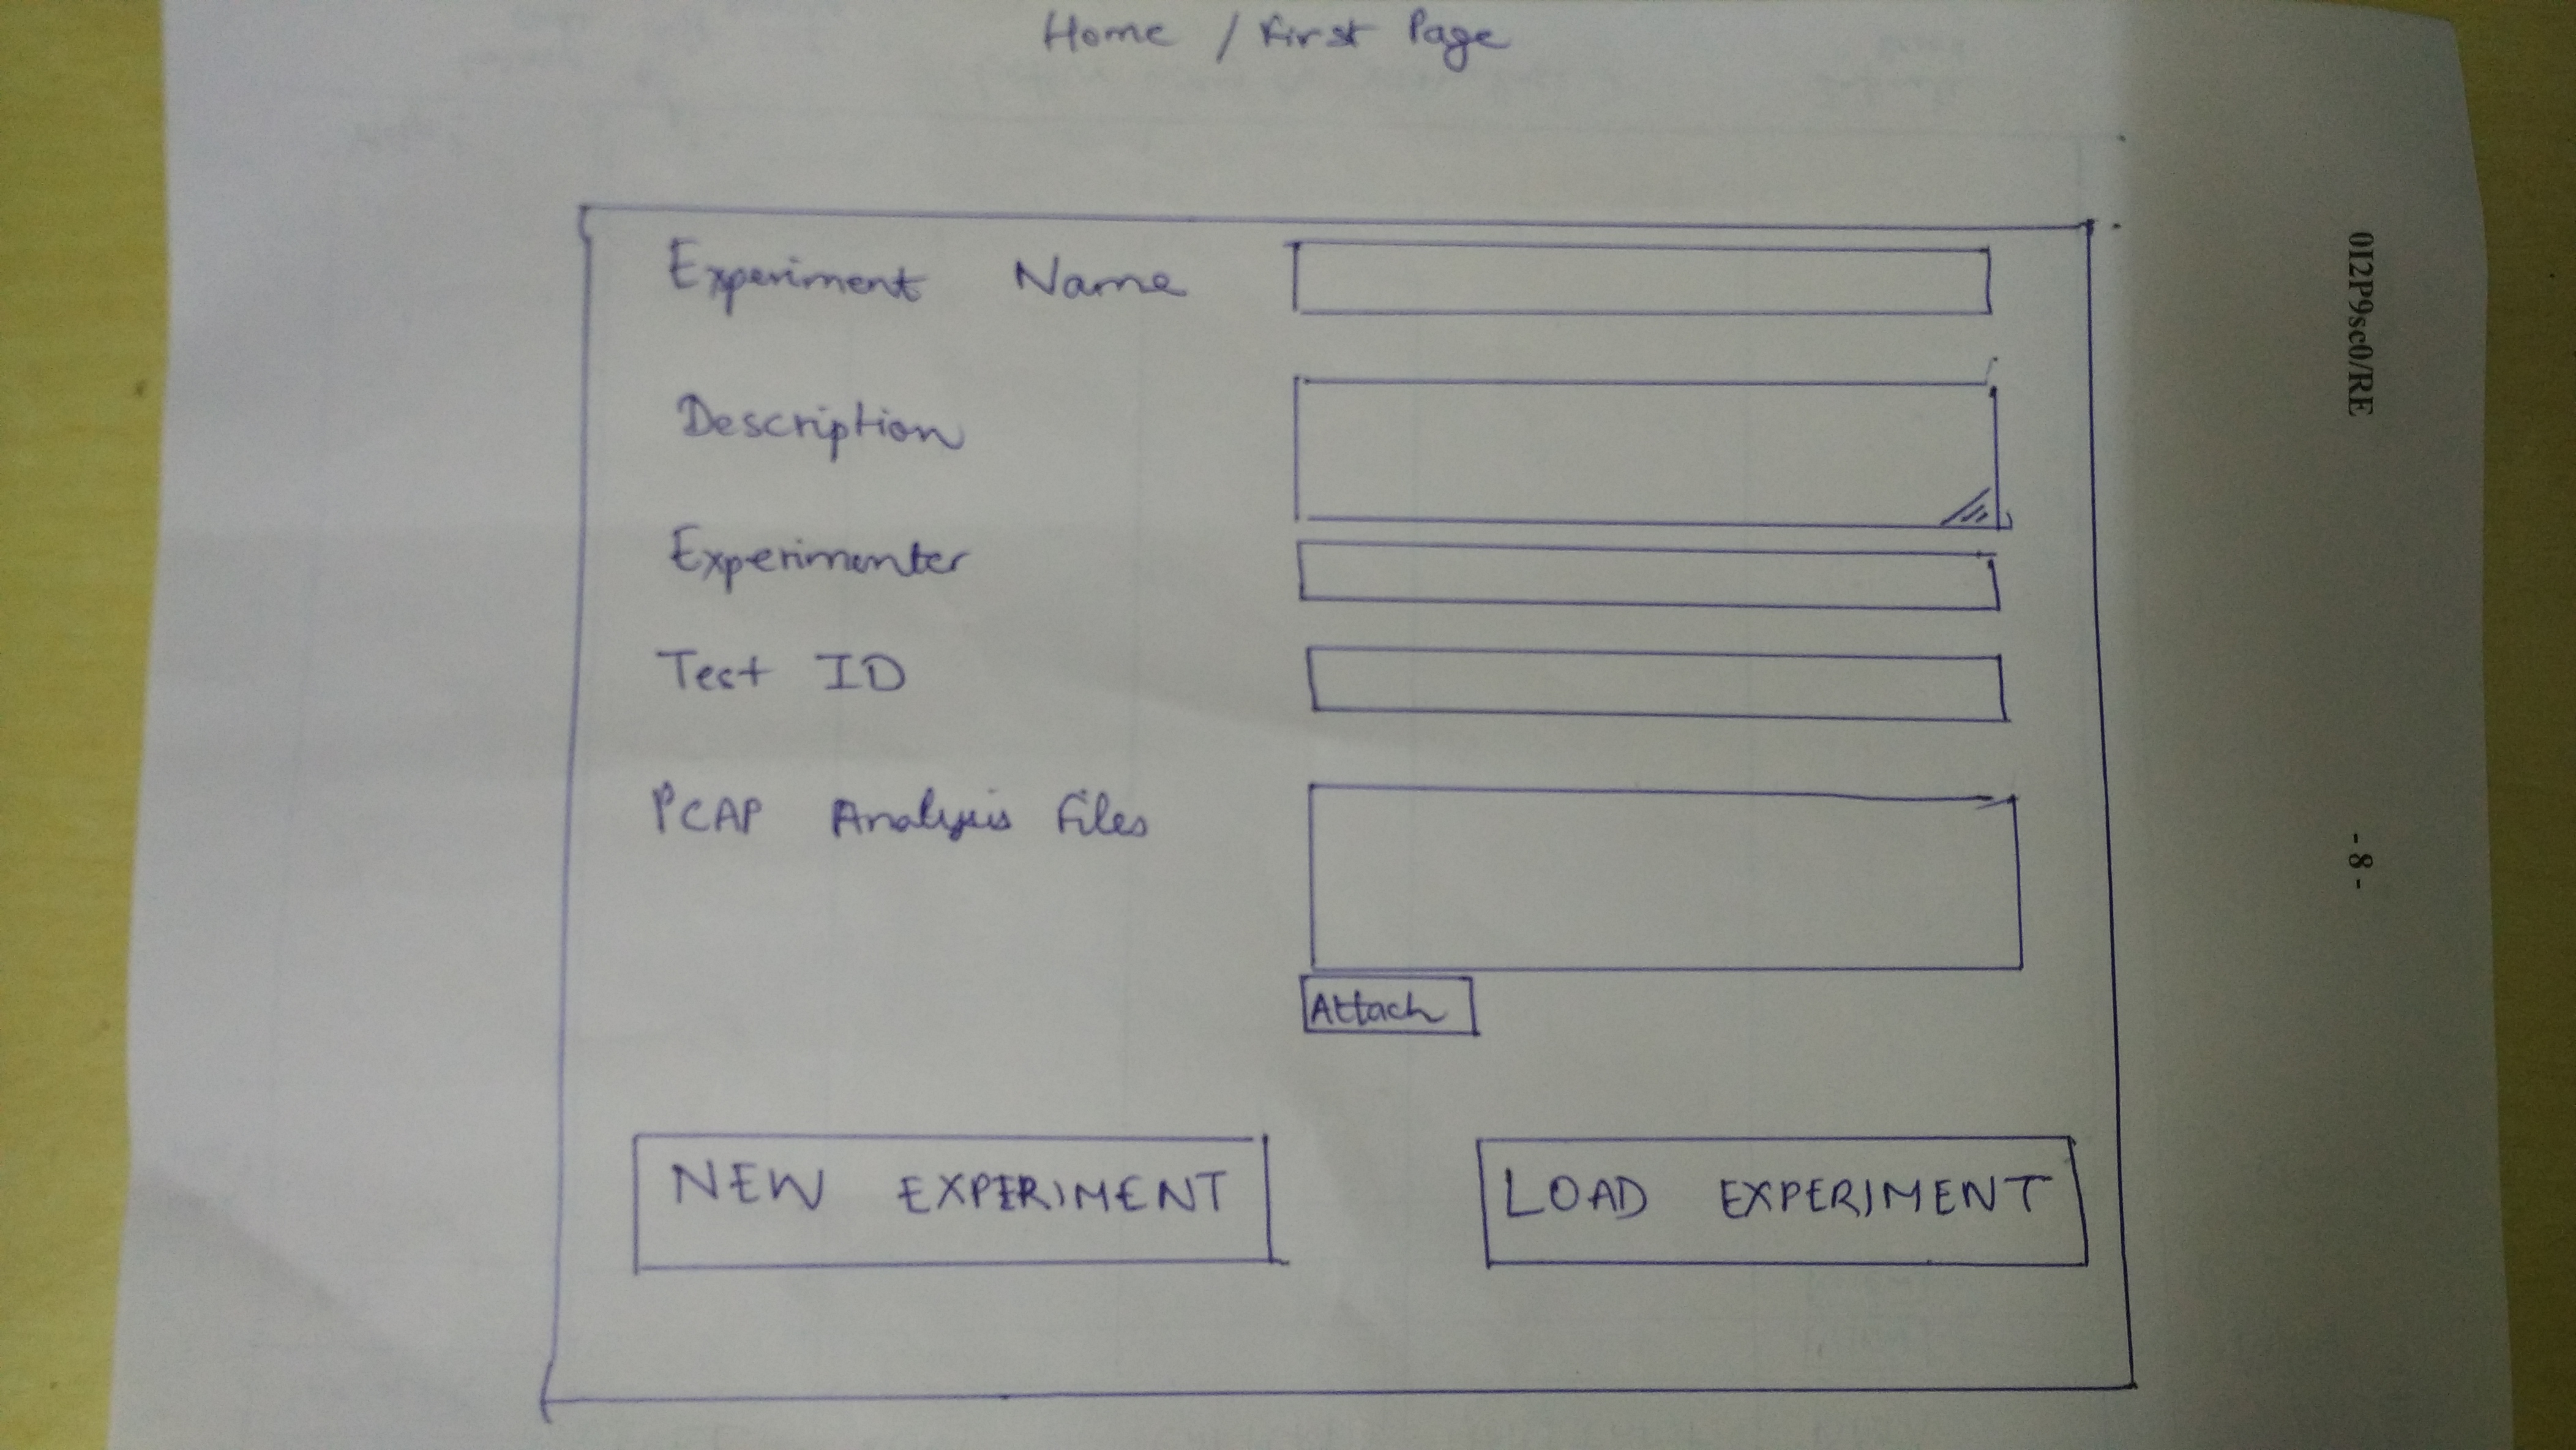 Home / First Page
Experiment Name
Description
Experimenter
Test ID
PCAP Analysis Files
Attach
NEW EXPERIMENT
LOAD EXPERIMENT
0I2P9sc0/RE
- 8 -